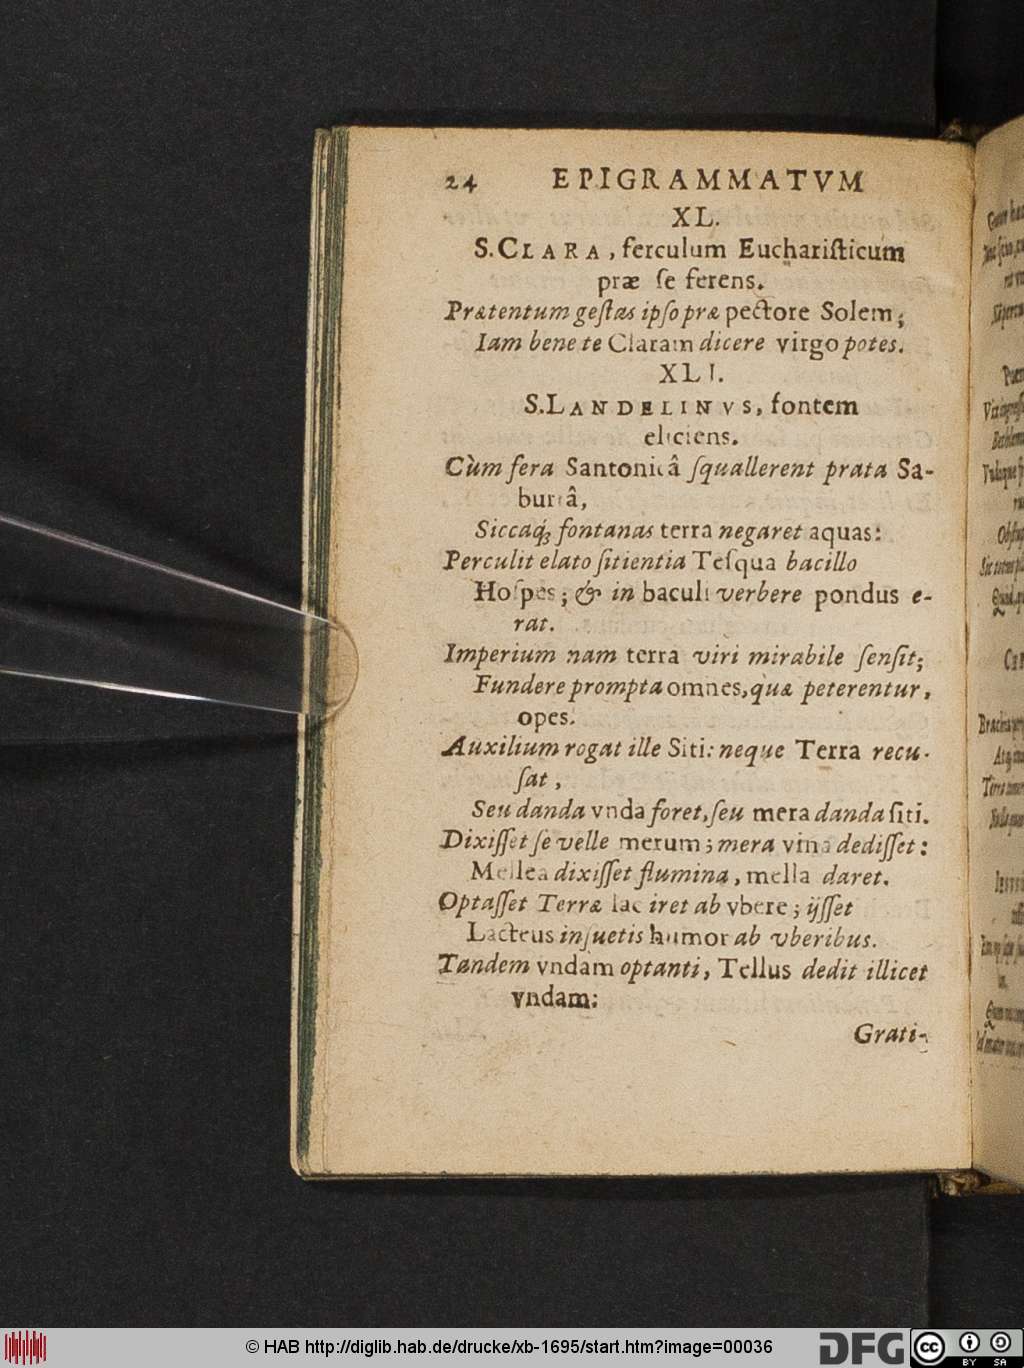 24 EPIGRAMMATVM
XL.
S. CLARA, ferculum Euchariſticum
præ ſe ferens.
Prætentum geſtas ipſo præ pectore Solem;
Iam bene te Claram dicere virgo potes.
XLI.
S. LANDELINVS, fontem
eliciens.
Cùm fera Santonicâ ſquallerent prata Sa-
burrâ,
Siccaq́; fontanas terra negaret aquas:
Perculit elato ſitientia Teſqua bacillo
Hoſpes; & in baculi verbere pondus e-
rat.
Imperium nam terra viri mirabile ſenſit;
Fundere prompta omnes, quæ peterentur,
opes.
Auxilium rogat ille Siti: neque Terra recu-
ſat,
Seu danda vnda foret, ſeu mera danda ſiti.
Dixiſſet ſe velle merum; mera vina dediſſet:
Mellea dixiſſet flumina, mella daret.
Optaſſet Terræ lac iret ab vbere; ijſſet
Lacteus inſuetis humor ab vberibus.
Tandem vndam optanti, Tellus dedit illicet
vndam:
Grati-
© HAB http://diglib.hab.de/drucke/xb-1695/start.htm?image=00036
DFG
cc
BY SA